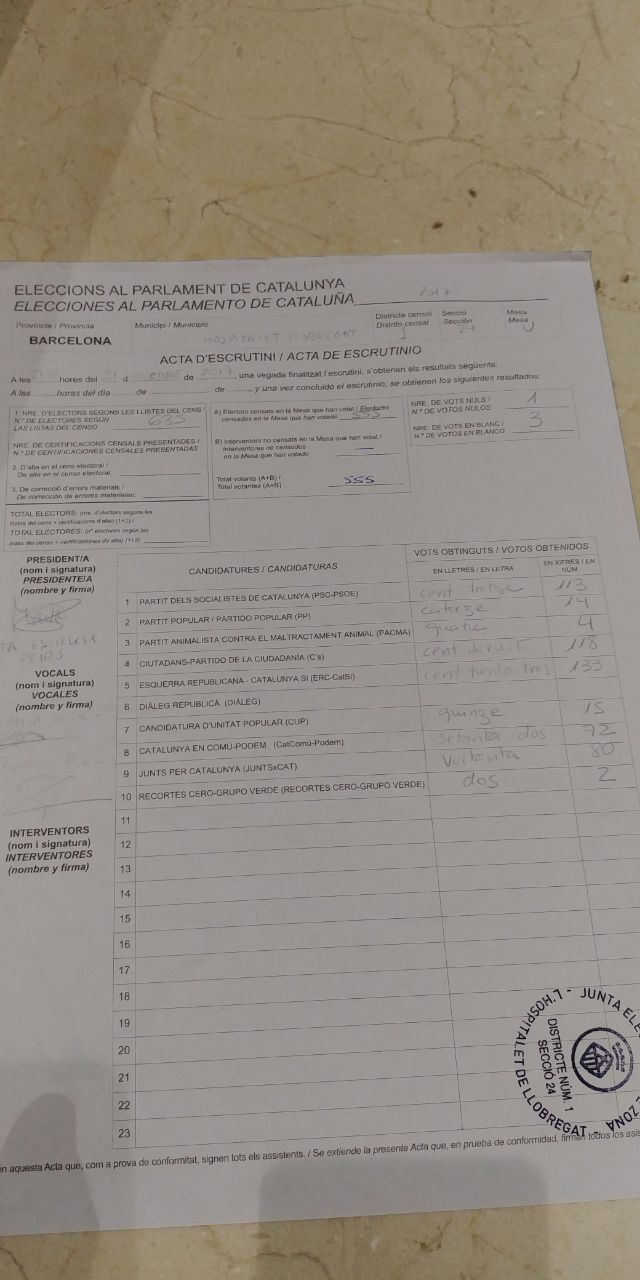 ELECCIONS AL PARLAMENT DE CATALUNYA
ELECCIONES AL PARLAMENTO DE CATALUÑA 2017
Provincia / Provincia Municipi / Municipio Districte censal Secció Mesa
Distrito censal Sección Mesa
BARCELONA HOSPITALET LLOBREGAT 1 24 U
ACTA D'ESCRUTINI / ACTA DE ESCRUTINIO
A les hores del 21 d de 2017, una vegada finalitzat l'escrutini, s'obtenen els resultats següents:
A las horas del día de de, y una vez concluido el escrutinio, se obtienen los siguientes resultados:
1. NRE. D'ELECTORS SEGONS LES LLISTES DEL CENS /
N.º DE ELECTORES SEGÚN
LAS LISTAS DEL CENSO 633
NRE. DE CERTIFICACIONS CENSALS PRESENTADES /
N.º DE CERTIFICACIONES CENSALES PRESENTADAS
2. D'alta en el cens electoral /
De alta en el censo electoral
3. De correcció d'errors materials /
De corrección de errores materiales
TOTAL ELECTORS: (nre. d'electors segons les
llistes del cens + certificacions d'alta) (1+2) /
TOTAL ELECTORES: (nº electores según las
listas del censo + certificaciones de alta) (1+2)
A) Electors censats en la Mesa que han votat / Electores
censados en la Mesa que han votado 555
B) Interventors no censats en la Mesa que han votat /
Interventores no censados
en la Mesa que han votado —
Total votants (A+B) /
Total votantes (A+B) 555
NRE. DE VOTS NULS /
N.º DE VOTOS NULOS 1
NRE. DE VOTS EN BLANC /
N.º DE VOTOS EN BLANCO 3
PRESIDENT/A
(nom i signatura)
PRESIDENTE/A
(nombre y firma)
VOCALS
(nom i signatura)
VOCALES
(nombre y firma)
INTERVENTORS
(nom i signatura)
INTERVENTORES
(nombre y firma)
CANDIDATURES / CANDIDATURAS VOTS OBTINGUTS / VOTOS OBTENIDOS
EN LLETRES / EN LETRA EN XIFRES / EN NÚM.
1 PARTIT DELS SOCIALISTES DE CATALUNYA (PSC-PSOE) cent tretze 113
2 PARTIT POPULAR / PARTIDO POPULAR (PP) catorze 14
3 PARTIT ANIMALISTA CONTRA EL MALTRACTAMENT ANIMAL (PACMA) quatre 4
4 CIUTADANS-PARTIDO DE LA CIUDADANÍA (C's) cent divuit 118
5 ESQUERRA REPUBLICANA - CATALUNYA SÍ (ERC-CatSí) cent trenta-tres 133
6 DIÀLEG REPUBLICÀ (DIÀLEG)
7 CANDIDATURA D'UNITAT POPULAR (CUP) quinze 15
8 CATALUNYA EN COMÚ-PODEM (CatComú-Podem) setanta dos 72
9 JUNTS PER CATALUNYA (JUNTSxCAT) vuitanta 80
10 RECORTES CERO-GRUPO VERDE (RECORTES CERO-GRUPO VERDE) dos 2
11
12
13
14
15
16
17
18
19
20
21
22
23
JUNTA ELE ZONA - L'HOSPITALET DE LLOBREGAT -
DISTRICTE NÚM. 1
SECCIÓ 24
én aquesta Acta que, com a prova de conformitat, signen tots els assistents. / Se extiende la presente Acta que, en prueba de conformidad, firman todos los asis